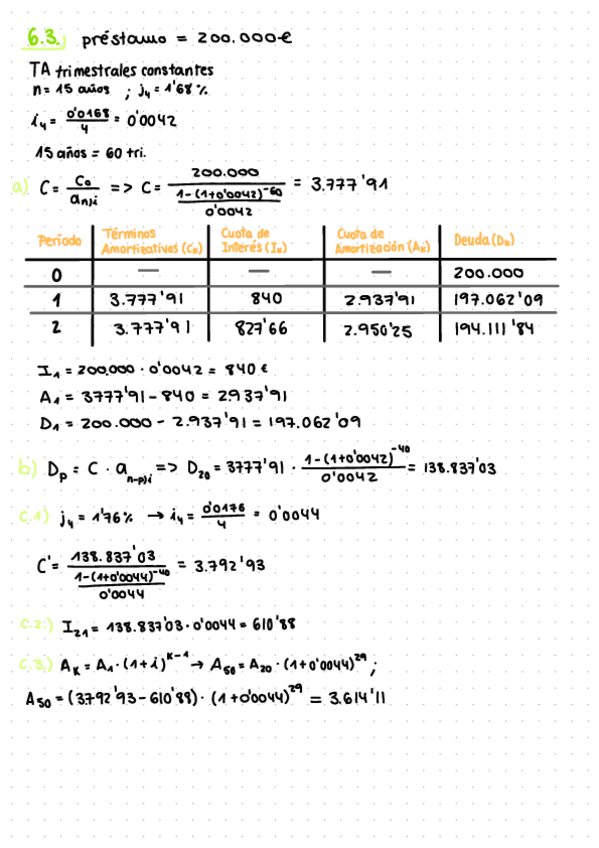 6.3. préstamo = 200.000€
TA trimestrales constantes
n = 15 años ; j₄ = 1'68 %
i₄ = 0'0168/4 = 0'0042
15 años = 60 tri.
a) C = C₀/aₙ₎ᵢ => C = 200.000/((1-(1+0'0042)⁻⁶⁰)/0'0042) = 3.777'91
Período | Términos Amortizativos (Cₖ) | Cuota de Interés (Iₖ) | Cuota de Amortización (Aₖ) | Deuda (Dₖ)
0 | — | — | — | 200.000
1 | 3.777'91 | 840 | 2.937'91 | 197.062'09
2 | 3.777'91 | 827'66 | 2.950'25 | 194.111'84
I₁ = 200.000 · 0'0042 = 840 €
A₁ = 3777'91 - 840 = 2937'91
D₁ = 200.000 - 2.937'91 = 197.062'09
b) Dₚ = C · aₙ₋ₚ₎ᵢ => D₂₀ = 3777'91 · (1-(1+0'0042)⁻⁴⁰)/0'0042 = 138.837'03
c.1) j₄ = 1'76% → i₄ = 0'0176/4 = 0'0044
C' = 138.837'03/((1-(1+0'0044)⁻⁴⁰)/0'0044) = 3.792'93
c.2.) I₂₁ = 138.837'03 · 0'0044 = 610'88
c.3.) Aₖ = A₁ · (1+i)ᵏ⁻¹ → A₅₀ = A₂₀ · (1+0'0044)²⁹ ;
A₅₀ = (3792'93 - 610'88) · (1+0'0044)²⁹ = 3.614'11